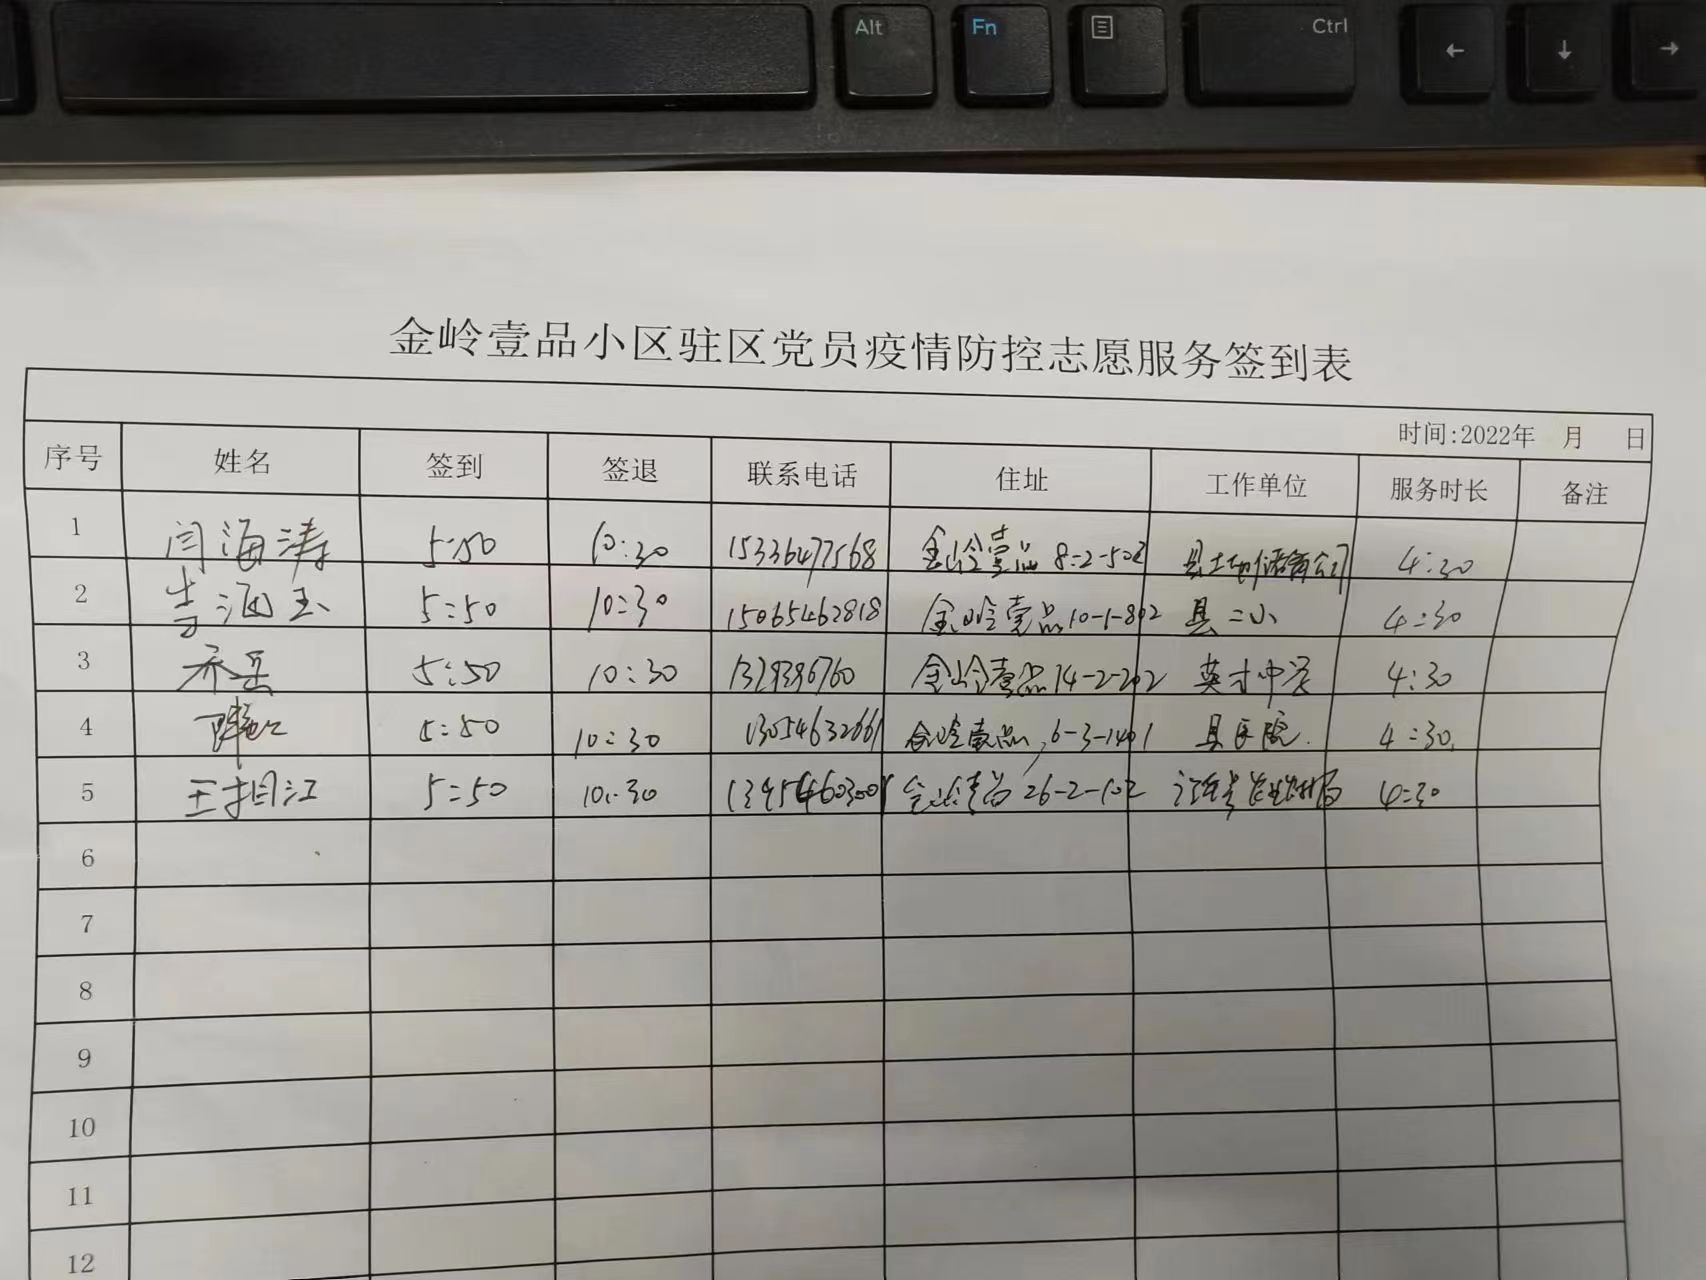 Alt Fn Ctrl ← ↓ →
金岭壹品小区驻区党员疫情防控志愿服务签到表
时间:2022年 月 日
序号 姓名 签到 签退 联系电话 住址 工作单位 服务时长 备注
1 闫海涛 5:50 10:30 15336477568 金岭壹品 8-2-502 县土地储备公司 4:30
2 李涵玉 5:50 10:30 15065462818 金岭壹品10-1-802 县二小 4:30
3 乔岳 5:50 10:30 金岭壹品14-2-202 英才中学 4:30
4 5:50 10:30 13054632661 金岭壹品,6-3-1401 县医院. 4:30
5 王相江 5:50 10:30 金岭壹品 26-2-102 4:30
6
7
8
9
10
11
12